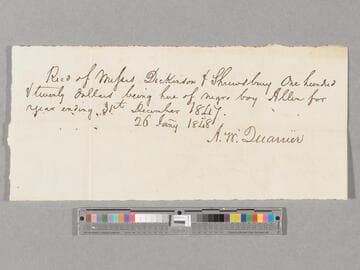 Recd of Messrs Dickinson & Shrewsbury One hundred
& twenty dollars being hire of negro boy Allen for
year ending 31st December 1847.
26 Jany 1848
A. W. Quarrier